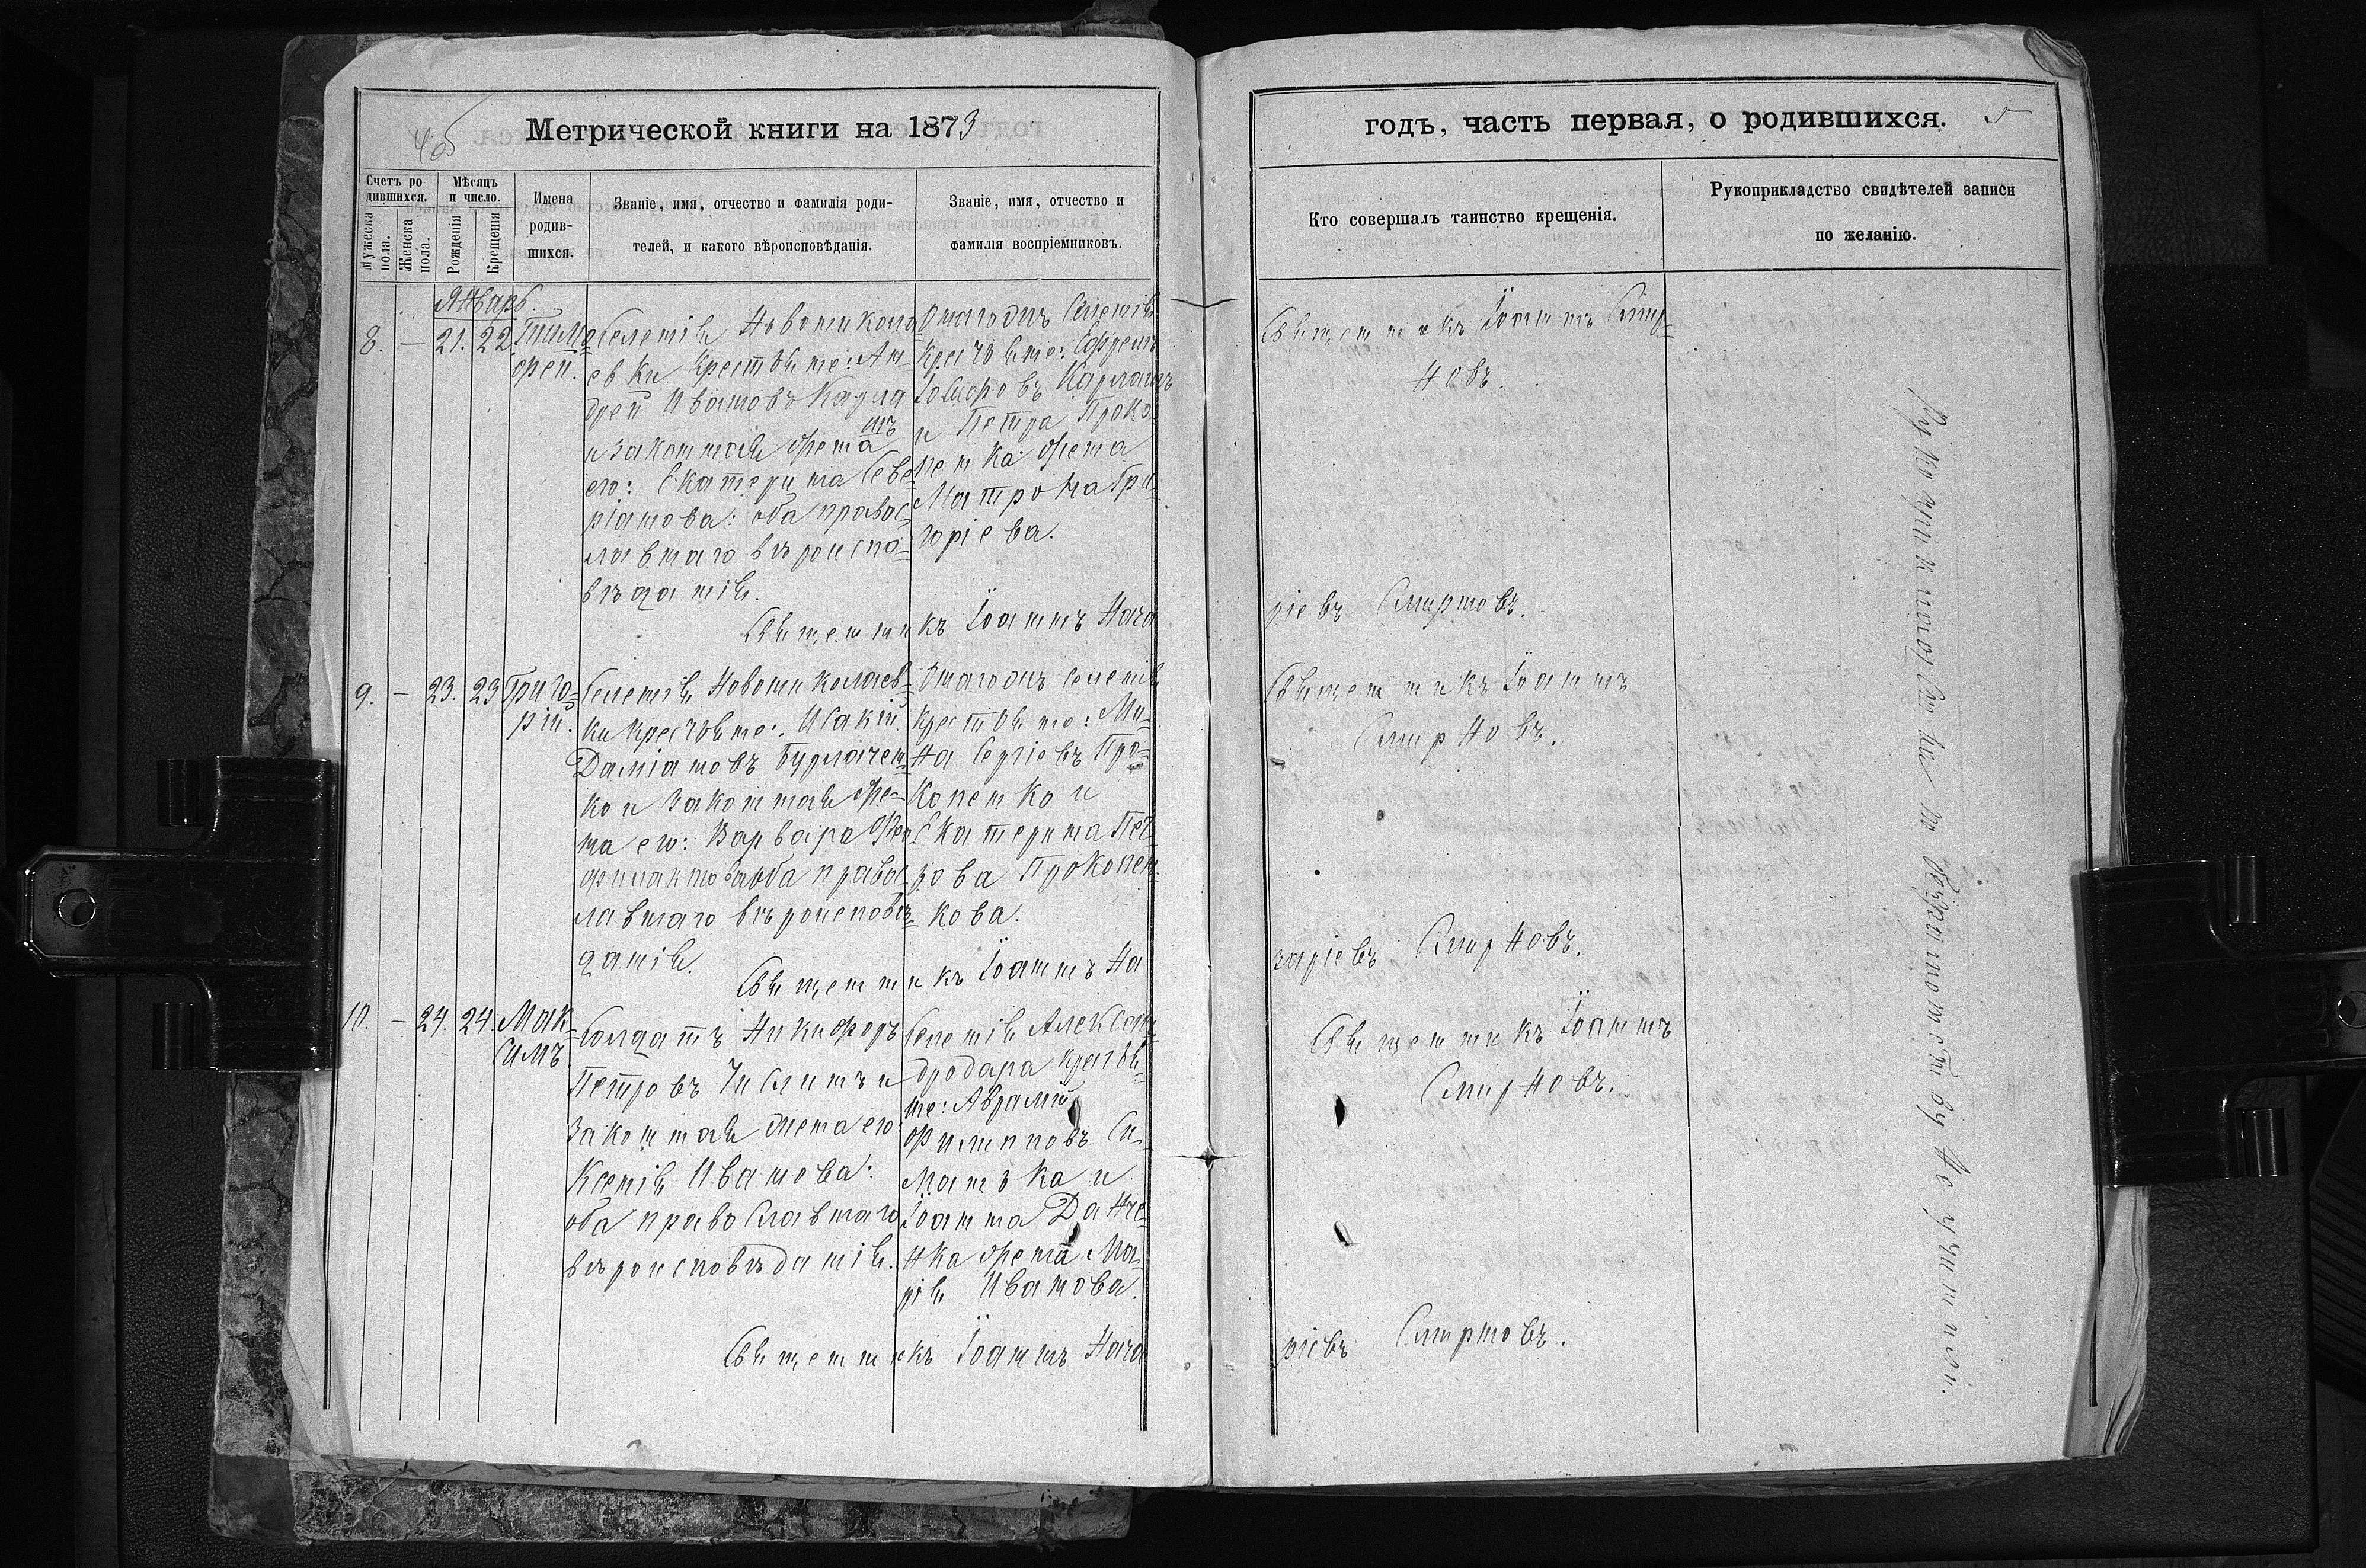 Метрической книги на 1873
годъ, часть первая, о родившихся. 5
Счетъ ро-
дившихся.
Мужеска
пола.
Женска
пола.
Мѣсяцъ
и число.
Рожденія
Крещенія
Имена
родив-
шихся.
Званіе, имя, отчество и фамилія роди-
телей, и какого вѣроисповѣданія.
Званіе, имя, отчество и
фамилія воспріемниковъ.
Кто совершалъ таинство крещенія.
Рукоприкладство свидѣтелей записи
по желанію.
Январь.
8. — 21. 22
Тимо=
фей.
Селенія Новониколa
евки крестьяне: Ан-
дрей Ивановъ Капла
нъ
и законная жена
его: Екатерина Севе
ріанова: оба правос=
лавнаго вѣроиспо=
вѣданія.
Онагожъ Селенія
крестьяне: Ефремъ
Іосифовъ Капланъ
и Петра Проко-
пенка жена
Матрона Гри-
горіева.
Священникъ Іоаннъ Смир=
новъ.
Священникъ Іоаннъ Наза
ріевъ Смирновъ.
9. — 23. 23
Григо=
рій.
Селенія Новониколаев=
ки крестьяне: Исакій
Даміановъ Бурлачен=
ко и законная же=
на его: Варвара Фео
филактова оба правос=
лавнаго вѣроисповѣ=
данія.
Онагожъ селенія
крестьяне: Ми-
на Сергіевъ Про=
копенко и
Екатерина Пет
рова Прокопен-
кова.
Священникъ Іоаннъ
Смирновъ.
Священникъ Іоаннъ На
заріевъ Смирновъ.
10. — 24. 24.
Мак=
симъ
Солдатъ Никифоръ
Петровъ и
законная жена его
Ксенія Иванова:
оба православнаго
вѣроисповѣданія.
Селенія Алексан-
дродара крестья-
не: Аврамій
Филиповъ Си-
манька и
Іоанна Данче-
нка жена Ма-
рія Иванова.
Священникъ Іоаннъ
Смирновъ.
Священникъ Іоаннъ Наза
ріевъ Смирновъ.